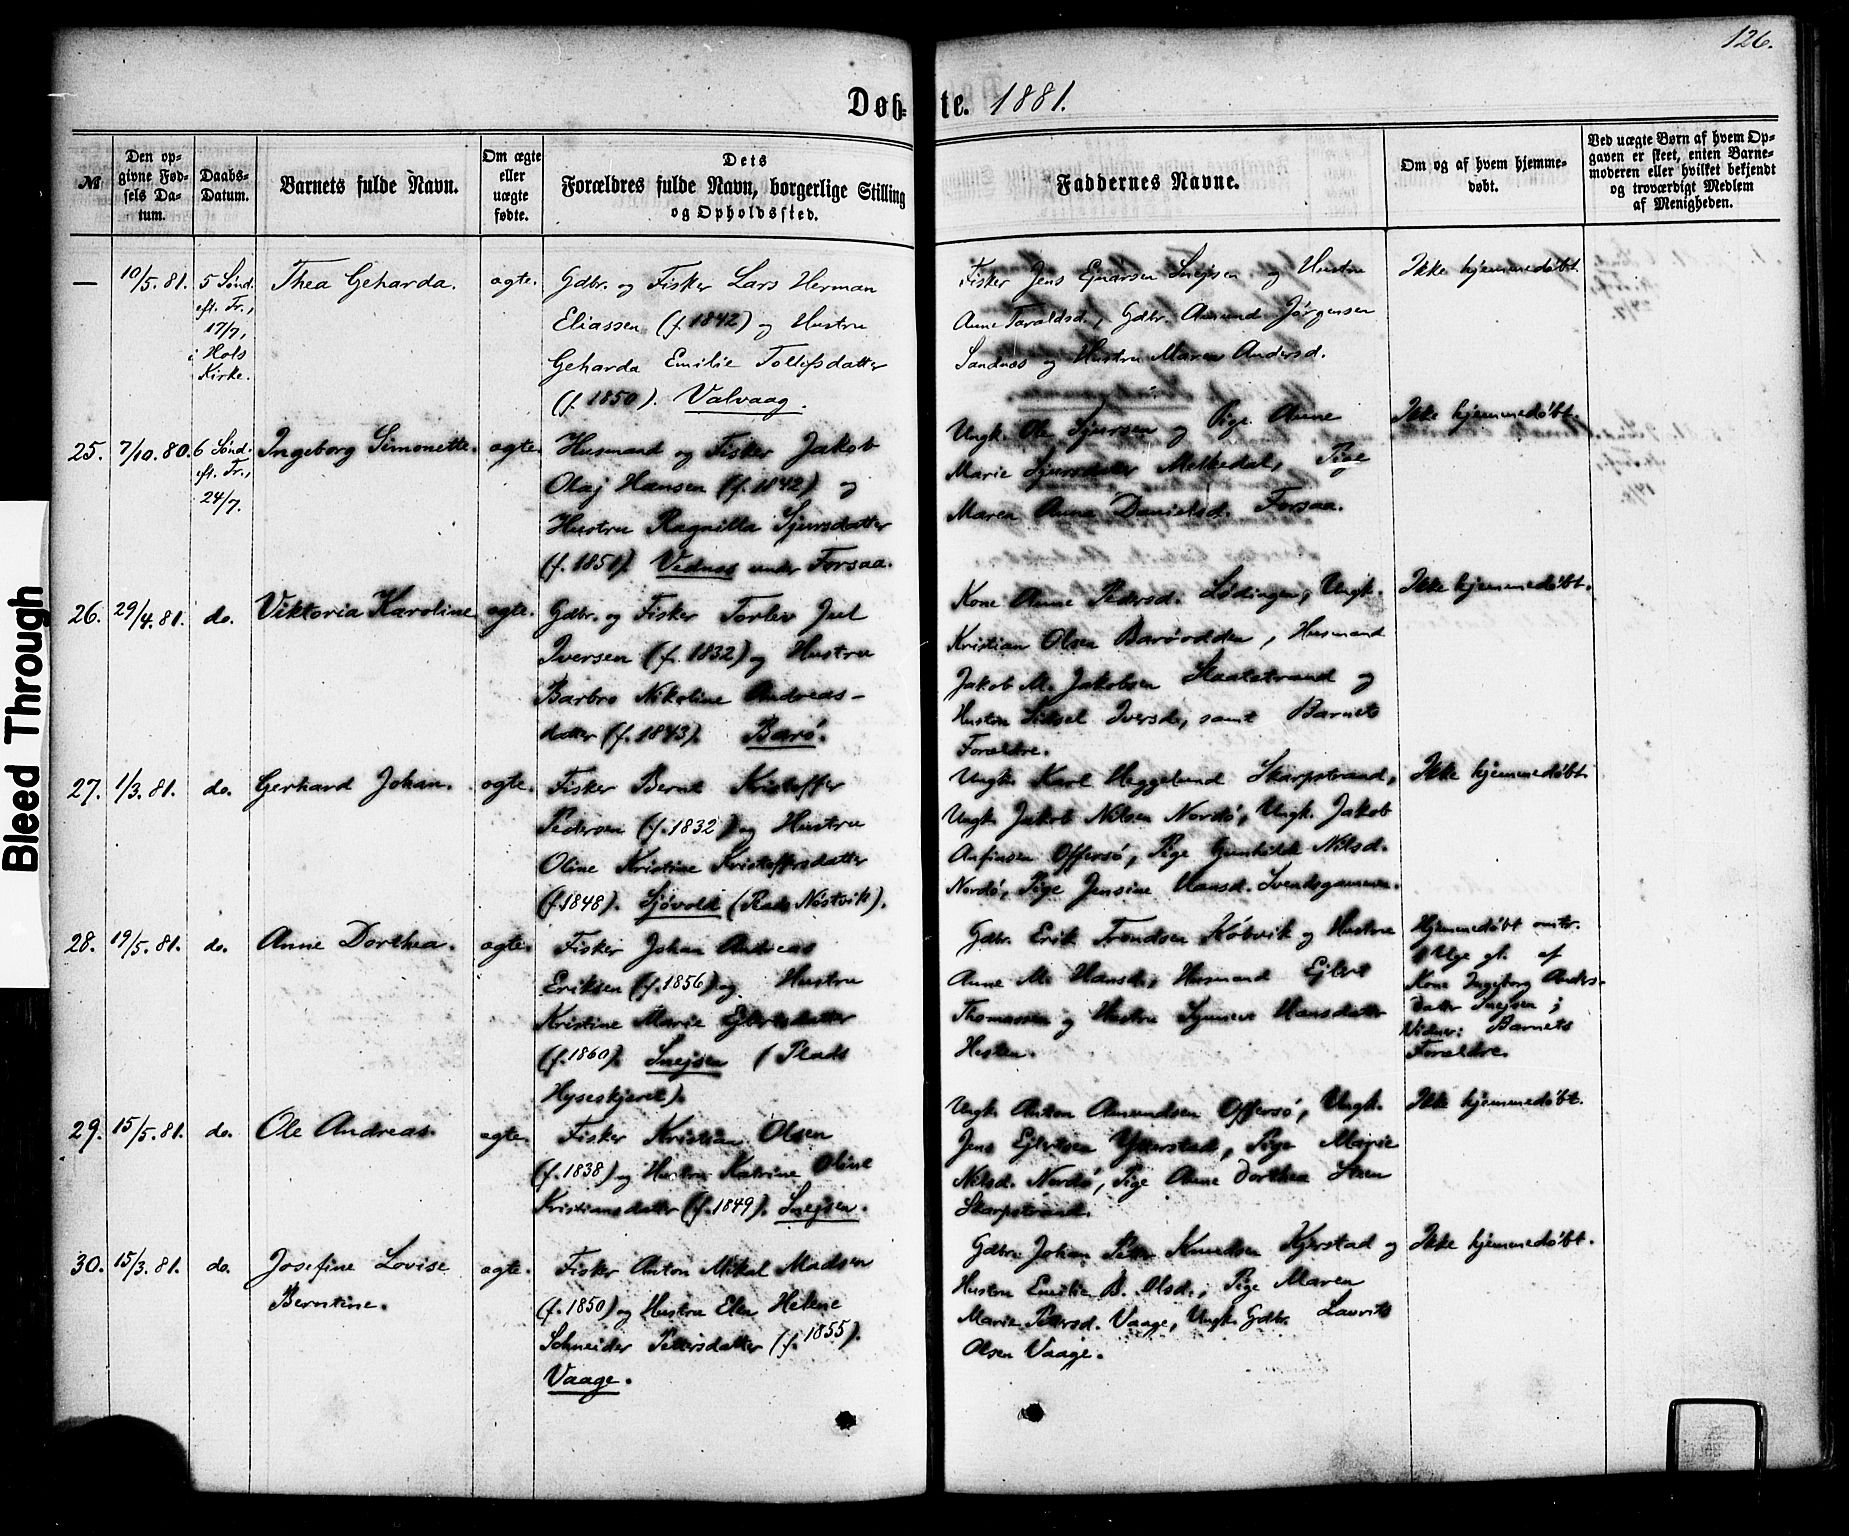 126.
Døb-te. 1881.
№
Den op-
givne Fød-
sels Da-
tum.
Daabs-
Datum.
Barnets fulde Navn.
Om ægte
eller
uægte
fødte.
Dets
Forældres fulde Navn, borgerlige Stilling
og Opholdssted.
Faddernes Navne.
Om og af hvem hjemme-
døbt.
Ved uægte Børn af hvem Op-
gaven er skeet, enten Barne-
moderen eller hvilket bekjendt
og troværdigt Medlem
af Menigheden.
—
10/5. 81.
5 Sønd.
eft. Tr.,
17/7,
i Hols
Kirke.
Thea Geharda.
ægte.
Gdbr. og Fisker Lars Herman
Eliassen (f. 1842) og Hustru
Geharda Emilie Tollefsdatter
(f. 1850). Valvaag.
Fisker Jens Ejnarsen Snejsen og Hustru
Anne Taraldsd., Gdbr. Amund Jørgensen
Sandnæs og Hustru Maren Andersd.
Ikke hjemmedøbt.
25.
7/10. 80.
6 Sønd.
eft. Tr.,
24/7.
Ingeborg Simonette.
ægte.
Husmand og Fisker Jakob
Olaj Hansen (f. 1842) og
Hustru Ragnilla Sjursdatter
(f. 1851). Vidnes under Forsaa.
Ungk. Ole Sjursen og Pige Anne
Marie Sjursdatter Melkedal, Pige
Maren Anna Danielsd. Forsaa.
Ikke hjemmedøbt.
26.
29/4. 81.
do.
Viktoria Karoline
ægte.
Gdbr. og Fisker Torlev Juel
Iversen (f. 1832) og Hustru
Barbro Nikoline Andreas-
datter (f. 1843). Barø.
Kone Anne Pedersd. Lødingen, Ungk.
Kristian Olsen Barøodden, Husmand
Jakob M. Jakobsen Slaatstrand og
Hustru Sidsel Iversd., samt Barnets
Forældre.
Ikke hjemmedøbt.
27.
1/3. 81.
do.
Gerhard Johan.
ægte.
Fisker Bernt Kristoffer
Pedersen (f. 1832) og Hustru
Oline Kristine Kristoffersdatter
(f. 1848). Sjøvold (Plads Nøstvik).
Ungk. Karl Heggelund Skarpstrand,
Ungk. Jakob Nilsen Nordø, Ungk. Jakob
Anfinsen Offersø, Pige Gunhilda Nilsd.
Nordø, Pige Jensine Hansd. Svendsgammen.
Ikke hjemmedøbt.
28.
19/5. 81.
do.
Anne Dorthea.
ægte.
Fisker Johan Andreas
Eriksen (f. 1856) og Hustru
Kristine Marie Ejlertsdatter
(f. 1860). Snejsen (Plads
Hyseskjæret).
Gdbr. Erik Trondsen Kobvik og Hustru
Anne M. Hansd., Husmand Ejlert
Thomassen og Hustru Synneve Hansdatter
Hesten.
Hjemmedøbt omtr.
1 Uge gl. af
Kone Ingeborg Anders-
datter Snejsen;
Vidner: Barnets
Forældre.
29.
15/5. 81.
do.
Ole Andreas.
ægte.
Fisker Kristian Olsen
(f. 1838) og Hustru Katrine Oline
Kristiansdatter (f. 1849). Snejsen.
Ungk. Anton Amundsen Offersø, Ungk.
Jens Ejlertsen Ytterstad, Pige Marie
Nilsd. Nordø, Pige Anne Dorthea Steen
Skarpstrand.
Ikke hjemmedøbt.
30.
15/3. 81.
do.
Josefine Lovise
Berntine.
ægte.
Fisker Anton Mikal Madsen
(f. 1850) og Hustru Elen Helene
Schneider Petersdatter (f. 1855).
Vaage.
Gdbr. Johan Petter Knudsen Kjerstad og
Hustru Emilie B. Olsd., Pige Maren
Marie Petersd. Vaage, Ungk. Gdbr. Laurits
Olsen Vaage.
Ikke hjemmedøbt.
Bleed Through